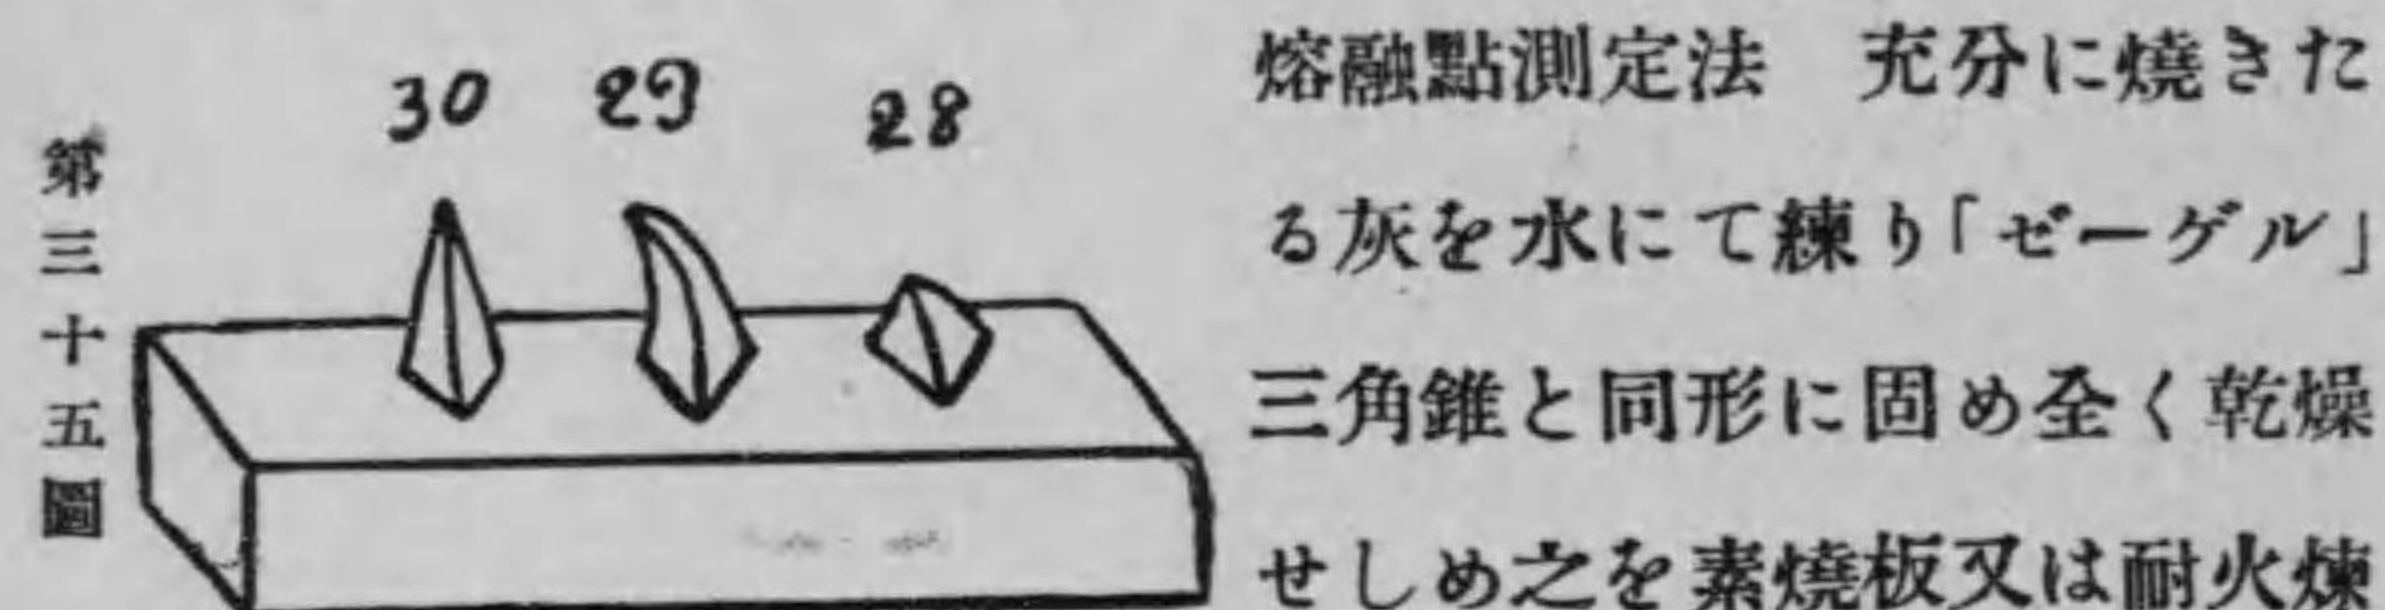 30 29 28
第三十五圖
熔融點測定法　充分に燒きた
る灰を水にて練り「ゼーゲル」
三角錐と同形に固め全く乾燥
せしめ之を素燒板又は耐火煉